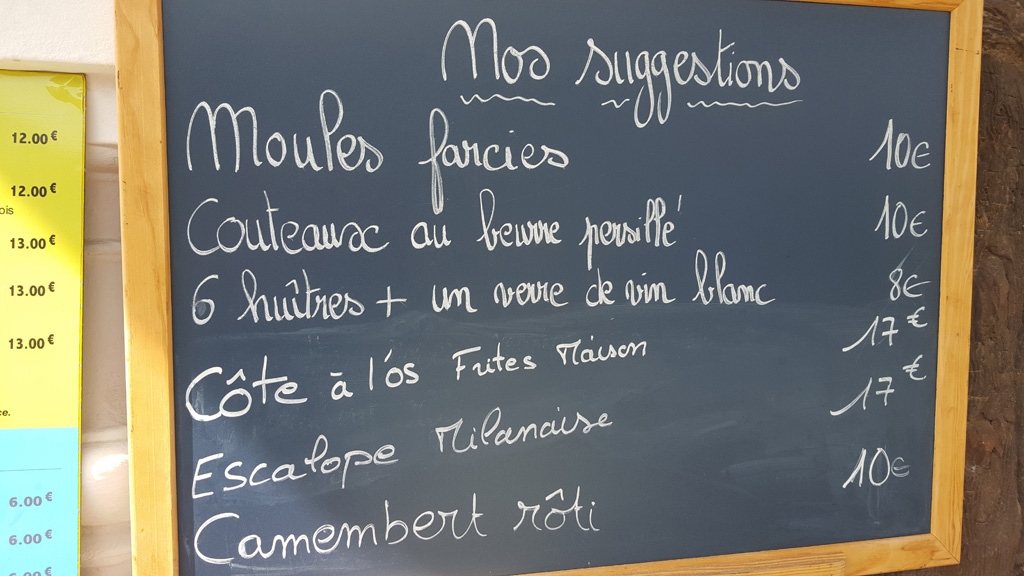 Nos suggestions
Moules farcies 10€
Couteaux au beurre persillé 10€
6 huîtres + un verre de vin blanc 8€
Côte à l'ós Frites Maison 17€
Escalope Milanaise 17€
Camembert rôti 10€
12.00€
12.00€
ois
13.00€
13.00€
13.00€
ce.
6.00€
6.00€